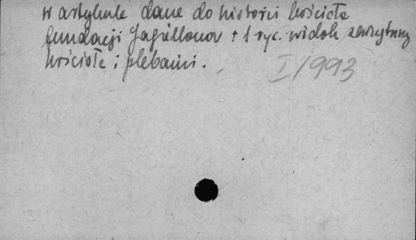 w artykule dane do historii kościoła
fundacji Jagiellonów + 1 ryc. widok zewnętrzny
kościoła i plebanii.
I/1993